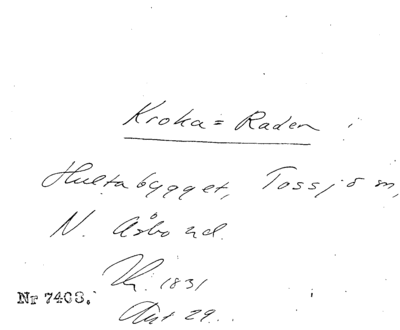 Kroka=Raden
Hultabygget, Tossjö m,
N. Åsbo hd.
1831
Nr 7408.
29.